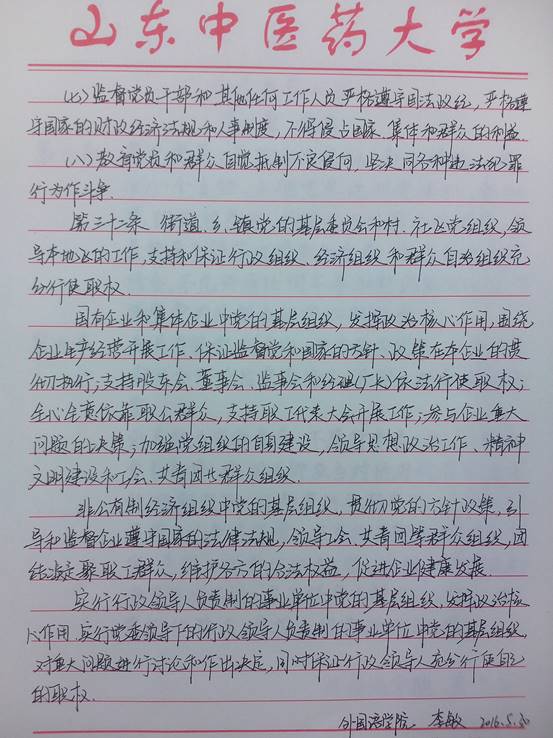 山东中医药大学
(七)监督党员干部和其他任何工作人员严格遵守国法政纪,严格遵
守国家的财政经济法规和人事制度,不得侵占国家、集体和群众的利益.
(八)教育党员和群众自觉抵制不良倾向,坚决同各种违法犯罪
行为作斗争.
第三十二条 街道、乡、镇党的基层委员会和村、社区党组织,领
导本地区的工作,支持和保证行政组织、经济组织和群众自治组织充
分行使职权.
国有企业和集体企业中党的基层组织,发挥政治核心作用,围绕
企业生产经营开展工作.保证监督党和国家的方针、政策在本企业的贯
彻执行;支持股东会、董事会、监事会和经理(厂长)依法行使职权;
全心全意依靠职工群众,支持职工代表大会开展工作;参与企业重大
问题的决策;加强党组织的自身建设,领导思想政治工作、精神
文明建设和工会、共青团等群众组织.
非公有制经济组织中党的基层组织,贯彻党的方针政策,引
导和监督企业遵守国家的法律法规,领导工会、共青团等群众组织,团
结凝聚职工群众,维护各方的合法权益,促进企业健康发展.
实行行政领导人负责制的事业单位中党的基层组织,发挥政治核
心作用.实行党委领导下的行政领导人负责制的事业单位中党的基层组织,
对重大问题进行讨论和作出决定,同时保证行政领导人充分行使自己
的职权.
外国语学院 李敏 2016.5.30